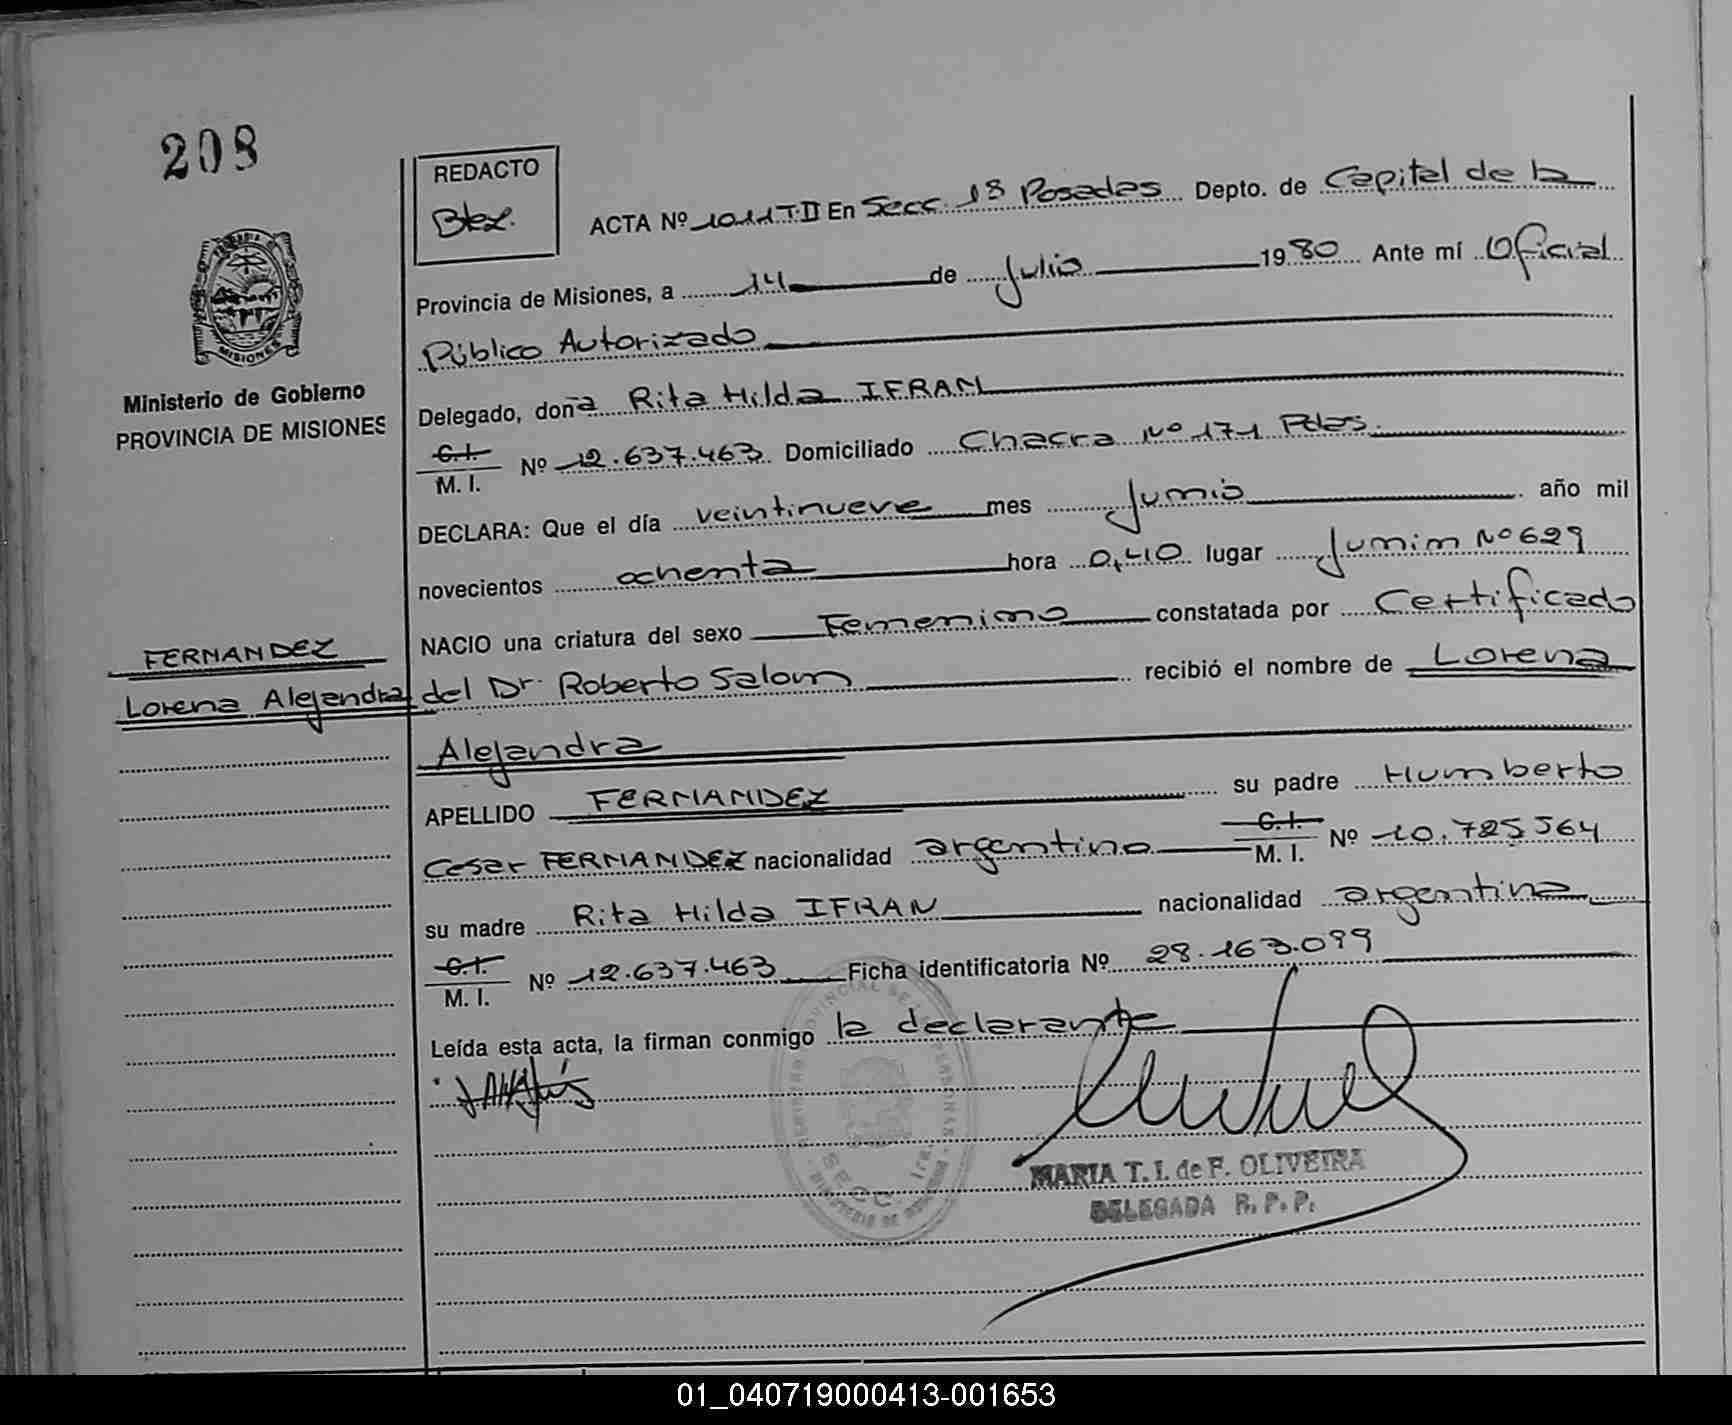 208
REDACTO
Btez.
ACTA Nº 1011 T.II En Secc. 1ª Posadas Depto. de Capital de la
Provincia de Misiones, a 14 de Julio 1980 Ante mí Oficial
Público Autorizado
MISIONES
Ministerio de Gobierno
PROVINCIA DE MISIONES
Delegado, donª Rita Hilda IFRAN
C.I.
M. I. Nº 12.637.463 Domiciliado Chacra Nº 171 Pdas.
DECLARA: Que el día veintinueve mes Junio año mil
novecientos ochenta hora 0,40 lugar Junin Nº 629
NACIO una criatura del sexo Femenino constatada por Certificado
FERNANDEZ
Lorena Alejandra
del Dr. Roberto Salom recibió el nombre de Lorena
Alejandra
APELLIDO FERNANDEZ su padre Humberto
Cesar FERNANDEZ nacionalidad argentino C.I. M. I. Nº 10.785564
su madre Rita Hilda IFRAN nacionalidad argentina
C.I.
M. I. Nº 12.637.463 Ficha identificatoria Nº 28.163.099
Leída esta acta, la firman conmigo la declarante
MARIA T. I. de F. OLIVEIRA
DELEGADA R. P. P.
SECC. 1ra.
01_040719000413-001653